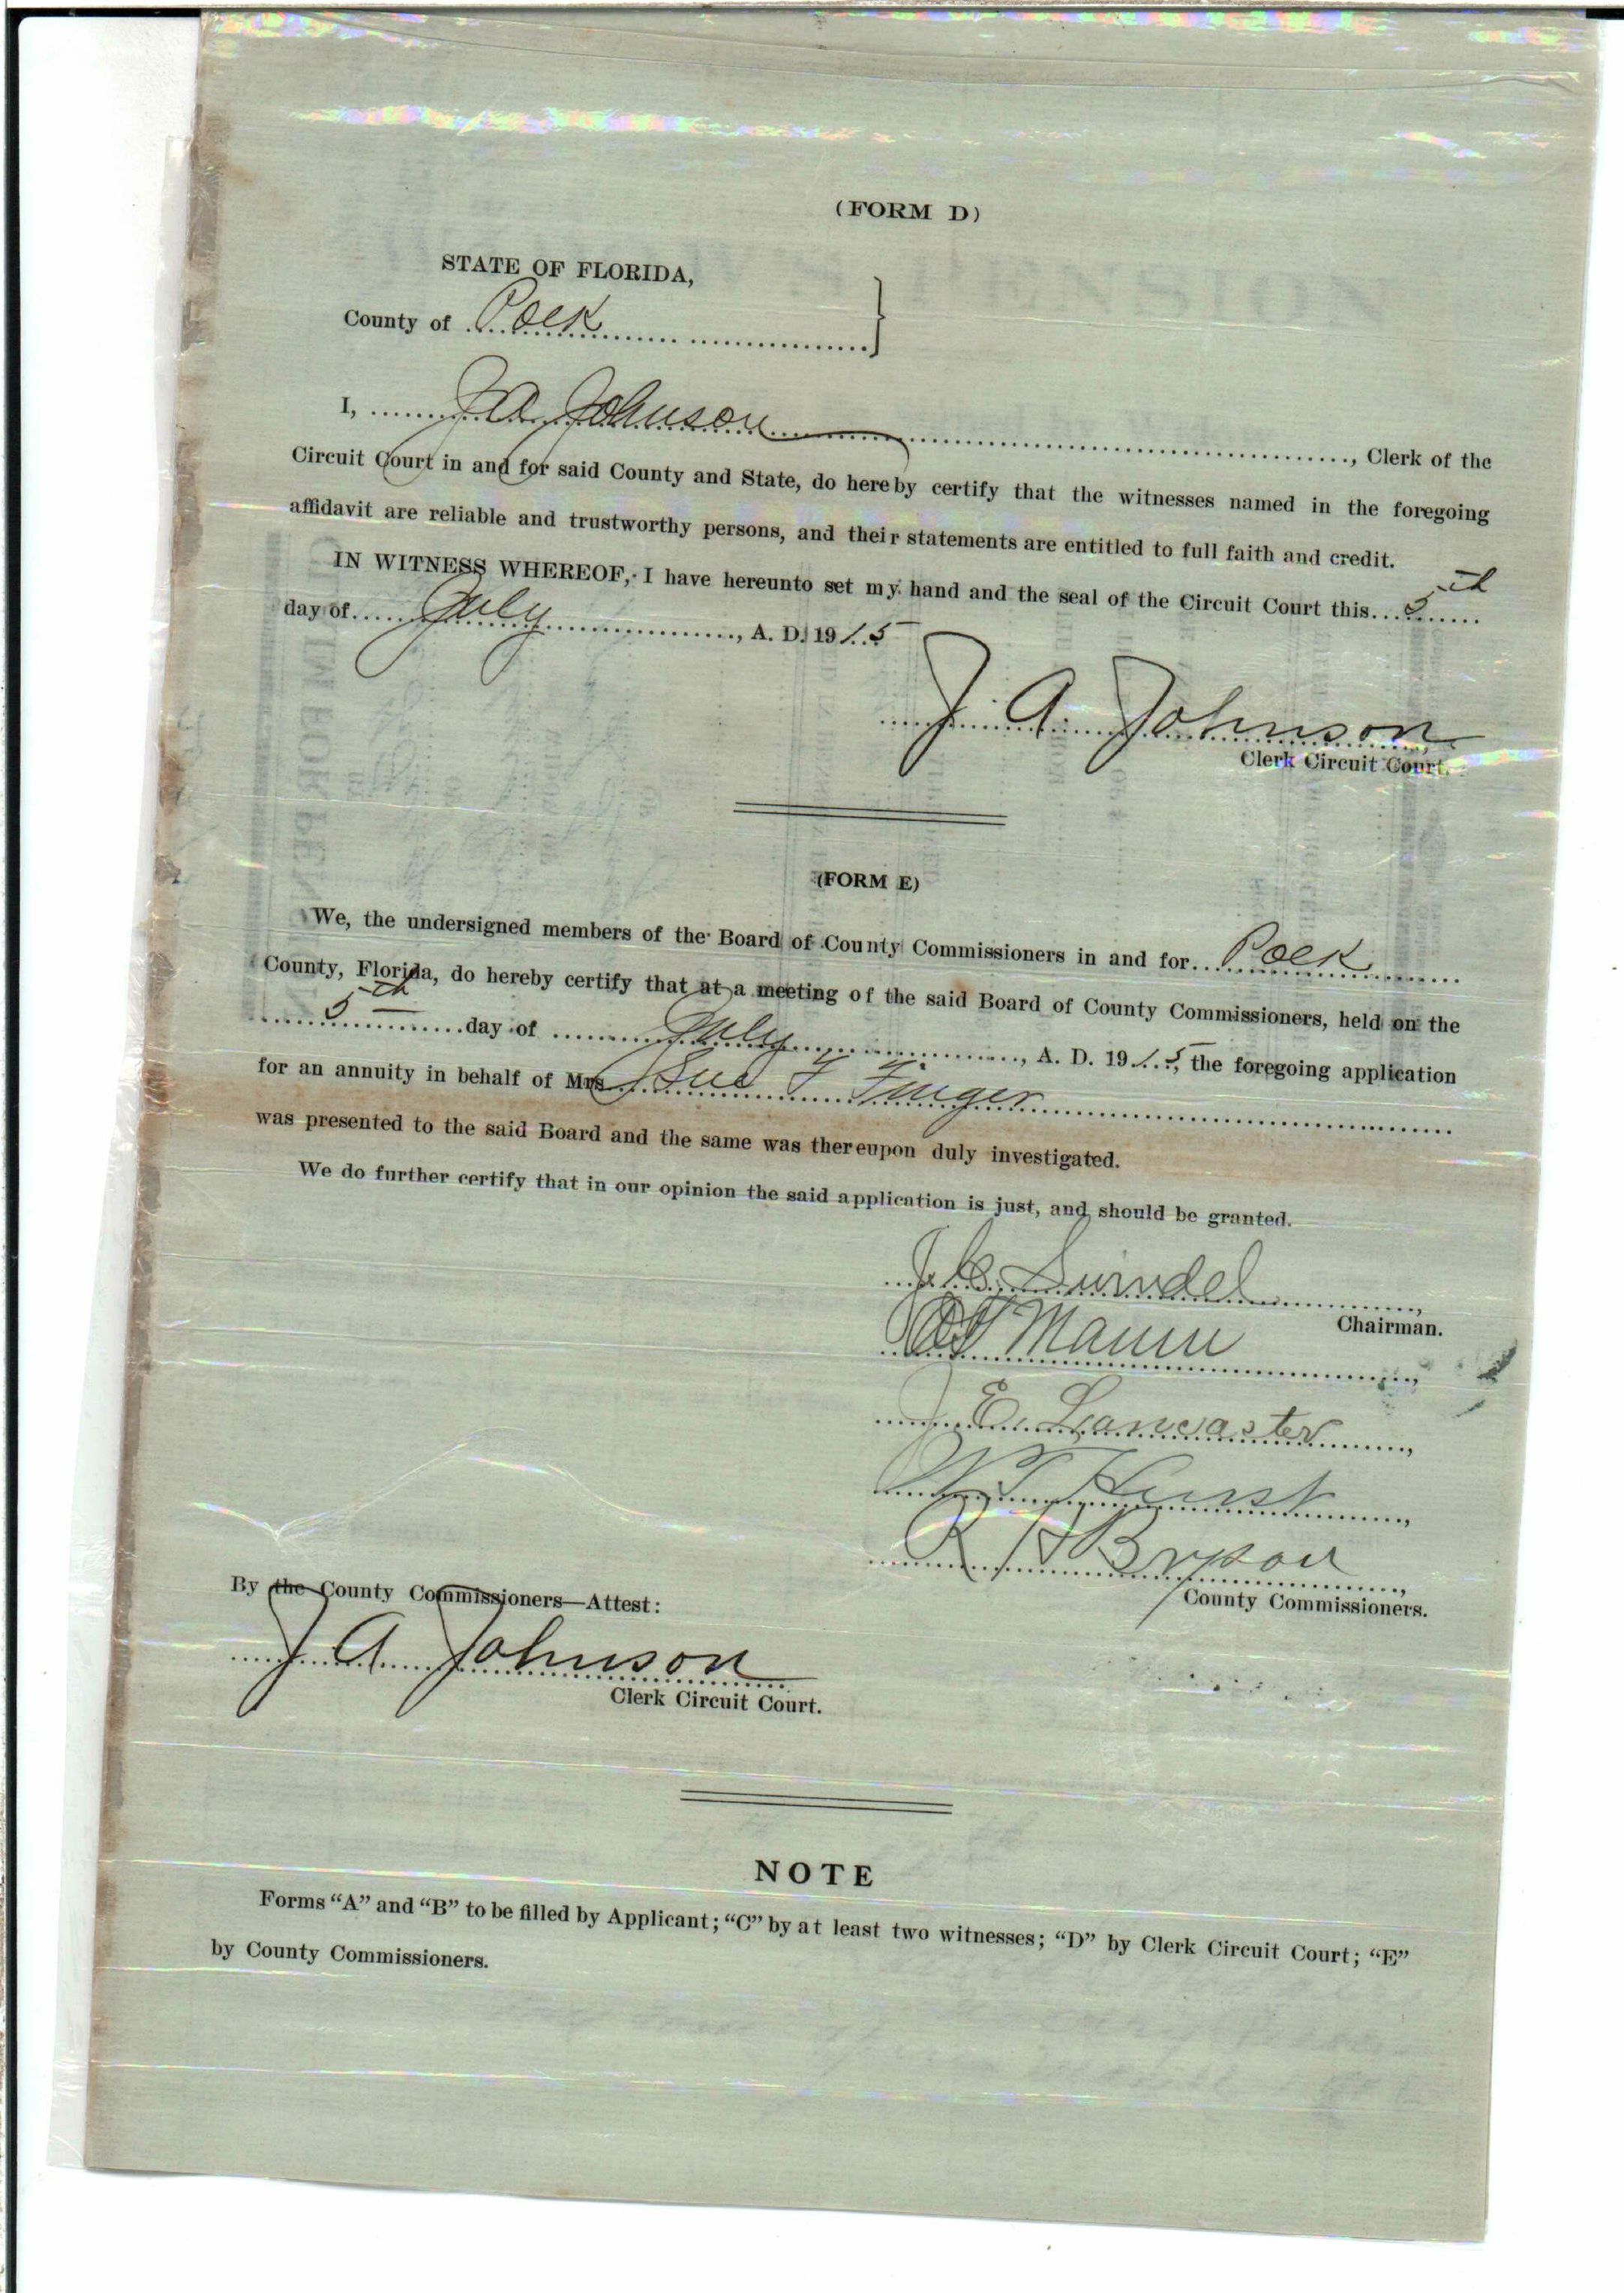 (FORM D)
STATE OF FLORIDA,
County of Polk
I, J A Johnson, Clerk of the
Circuit Court in and for said County and State, do hereby certify that the witnesses named in the foregoing
affidavit are reliable and trustworthy persons, and their statements are entitled to full faith and credit.
IN WITNESS WHEREOF, I have hereunto set my hand and the seal of the Circuit Court this 5th
day of July, A. D. 1915
J A Johnson,
Clerk Circuit Court.
(FORM E)
We, the undersigned members of the Board of County Commissioners in and for Polk
County, Florida, do hereby certify that at a meeting of the said Board of County Commissioners, held on the
5th day of July, A. D. 1915, the foregoing application
for an annuity in behalf of Mrs Sue F Finger
was presented to the said Board and the same was thereupon duly investigated.
We do further certify that in our opinion the said application is just, and should be granted.
J. C. Swindel,
Chairman.
Mann,
J. E. Lancaster,
W T Hurst,
R H Bryson,
County Commissioners.
By the County Commissioners—Attest:
J A Johnson
Clerk Circuit Court.
NOTE
Forms "A" and "B" to be filled by Applicant; "C" by at least two witnesses; "D" by Clerk Circuit Court; "E"
by County Commissioners.